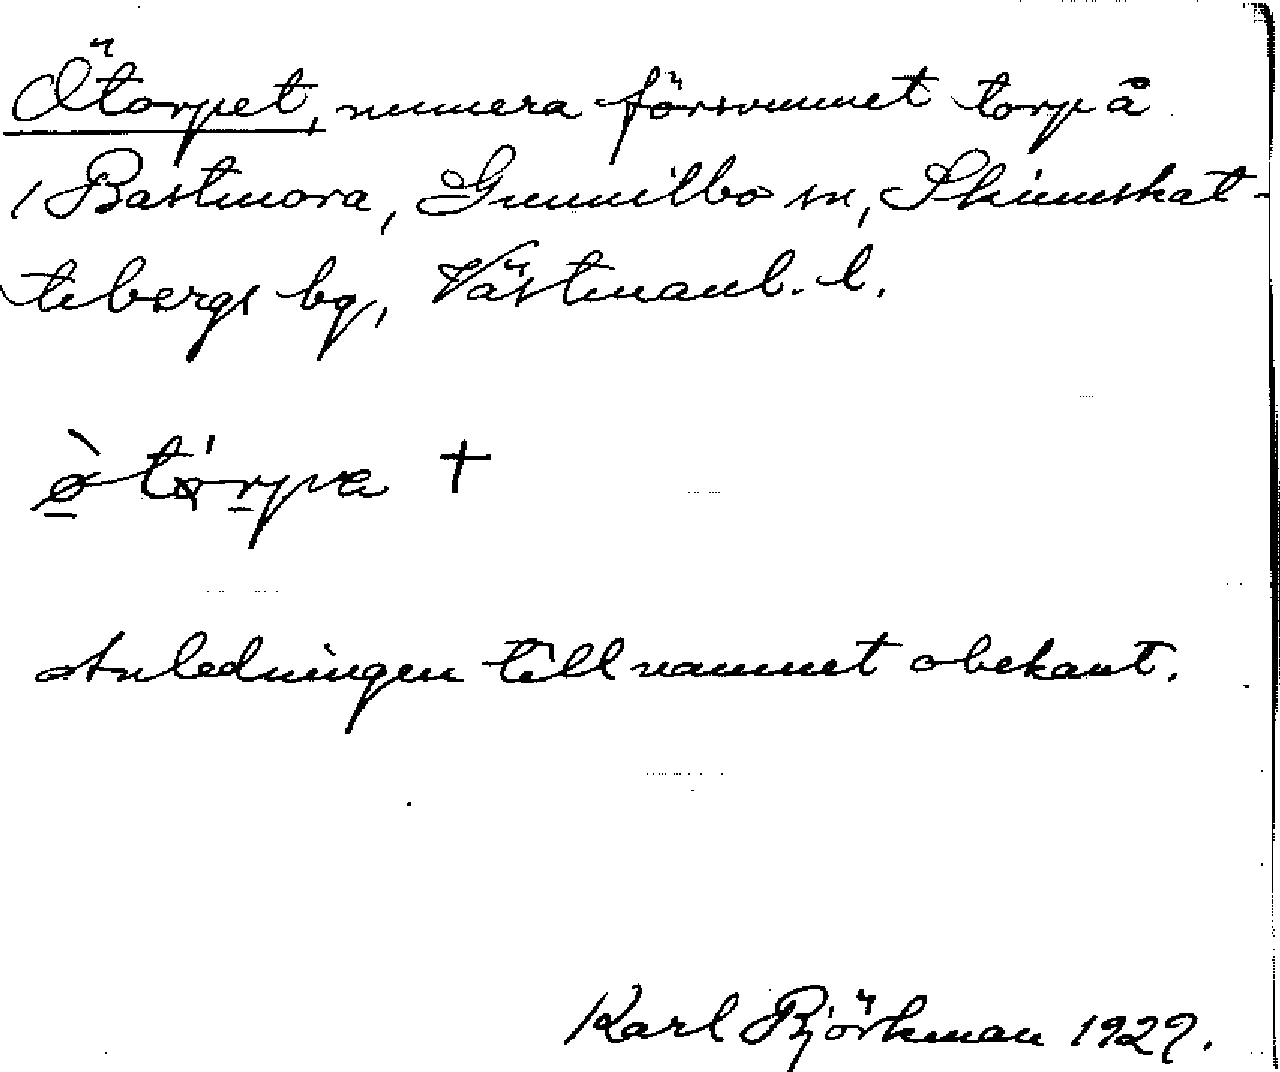 Ötorpet, numera försvunnet torp å
Bastmora, Gunnilbo sn, Skinnskat-
tebergs bg, Västmanl. l.
ø̀tɷ́rpa †
Anledningen till namnet obekant.
Karl Björkman 1929.